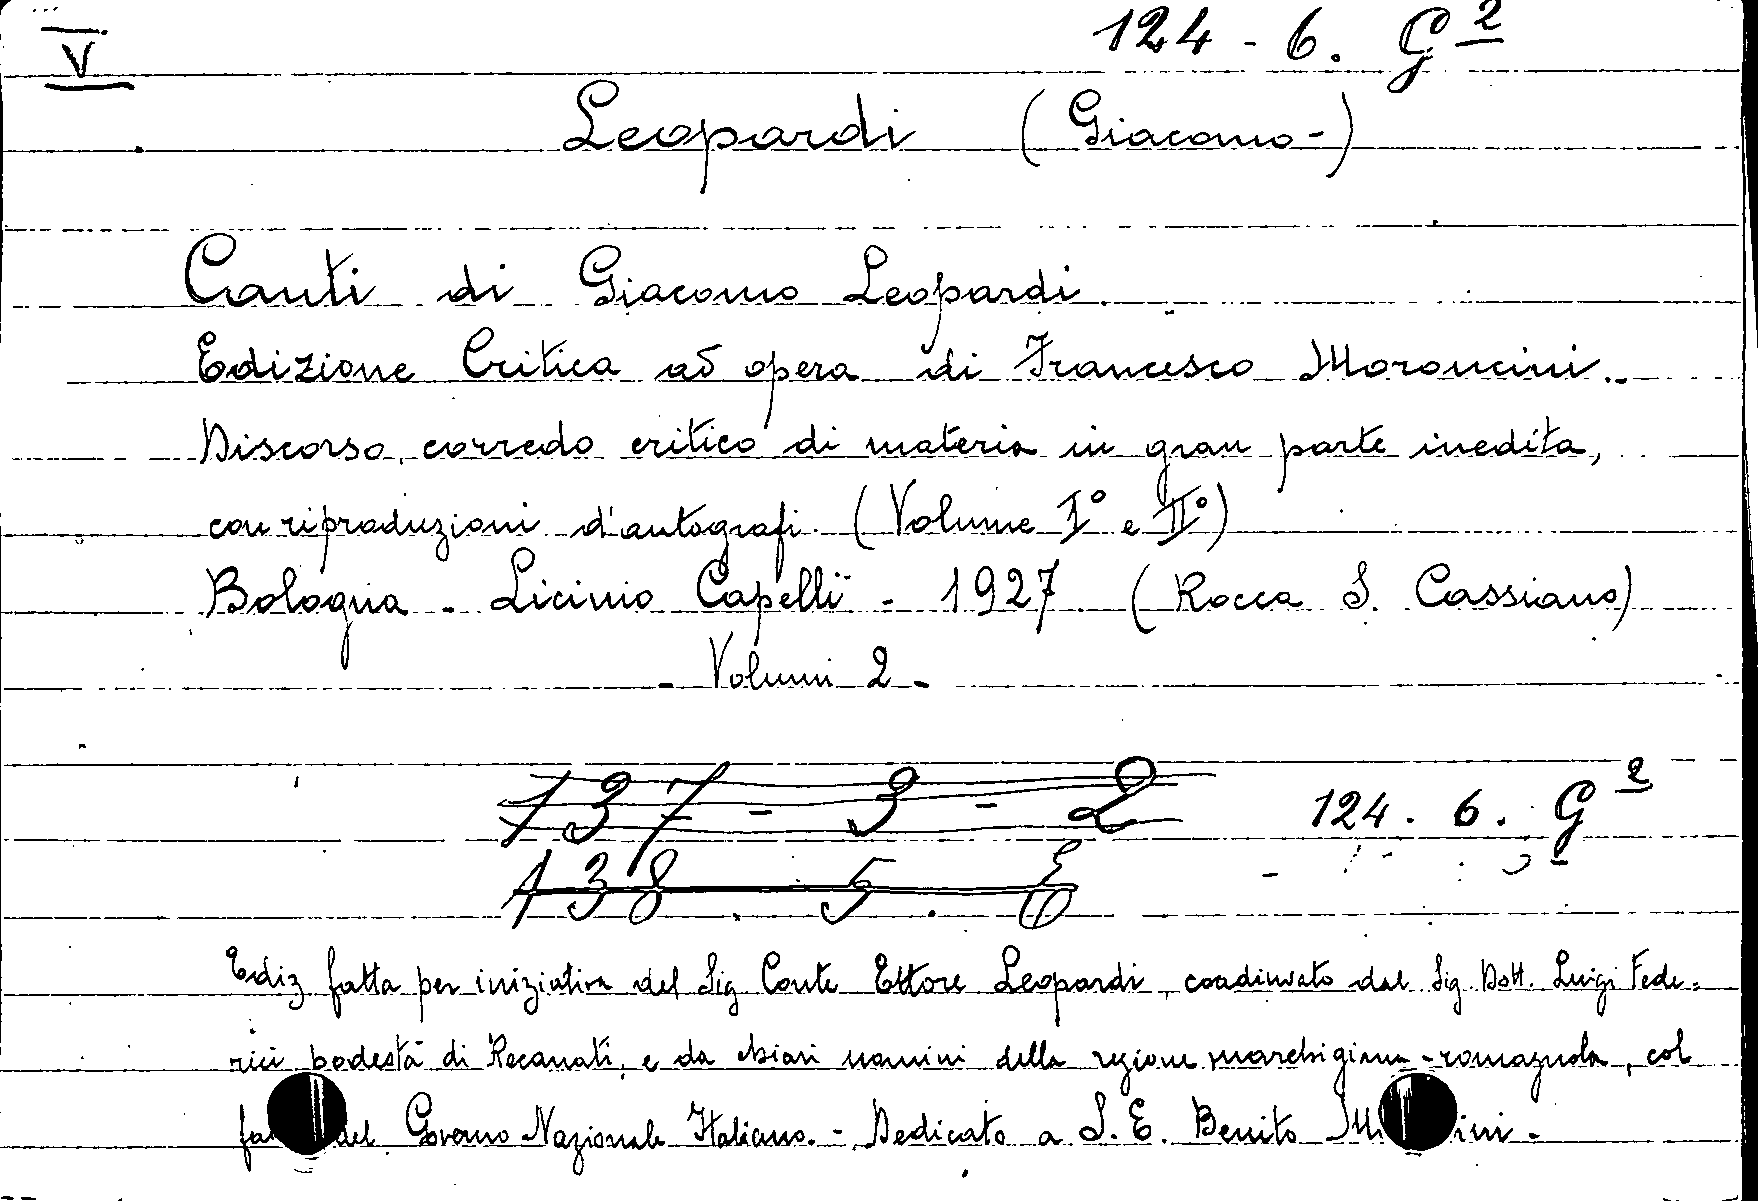 V
124 - 6. G2
Leopardi (Giacomo-)
Canti di Giacomo Leopardi.
Edizione Critica ad opera di Francesco Moroncini..
Discorso, corredo critico di materia in gran parte inedita,
con riproduzioni d'autografi. (Volume I° e II°)
Bologna - Licinio Capelli - 1927 (Rocca S. Cassiano)
- Volumi 2 -
137 - 3 - 2 124. 6. G2
138 . 5 .
Ediz fatta per iniziativa del Sig Conte Ettore Leopardi, coadiuvato dal Sig. Dott. Luigi Fede=
rici podestà di Recanati, e da chiari uomini della regione marchigiana-romagnola, col
del Governo Nazionale Italiano. - Dedicato a S. E. Benito